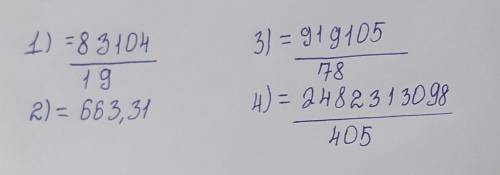 1) = 83104
19
2) = 663,31
3) = 919105
78
4) = 2482313098
405